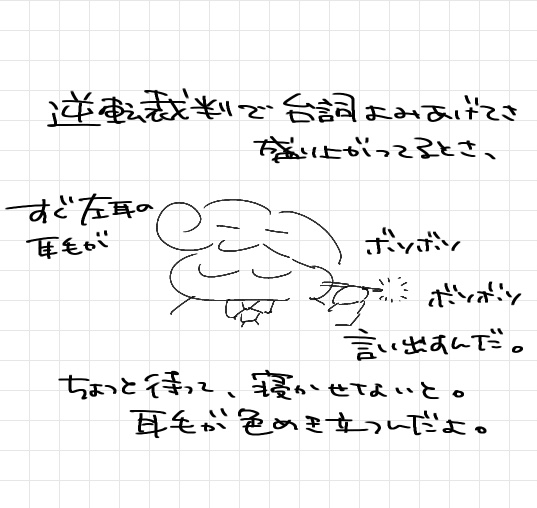 逆転裁判で台詞よみあげてさ
盛り上がってるとさ、
すぐ左耳の
耳毛が
ボソボソ
ボソボソ
言い出すんだ。
ちょっと待って、寝かせてないと。
耳毛が色めき立つんだよ。